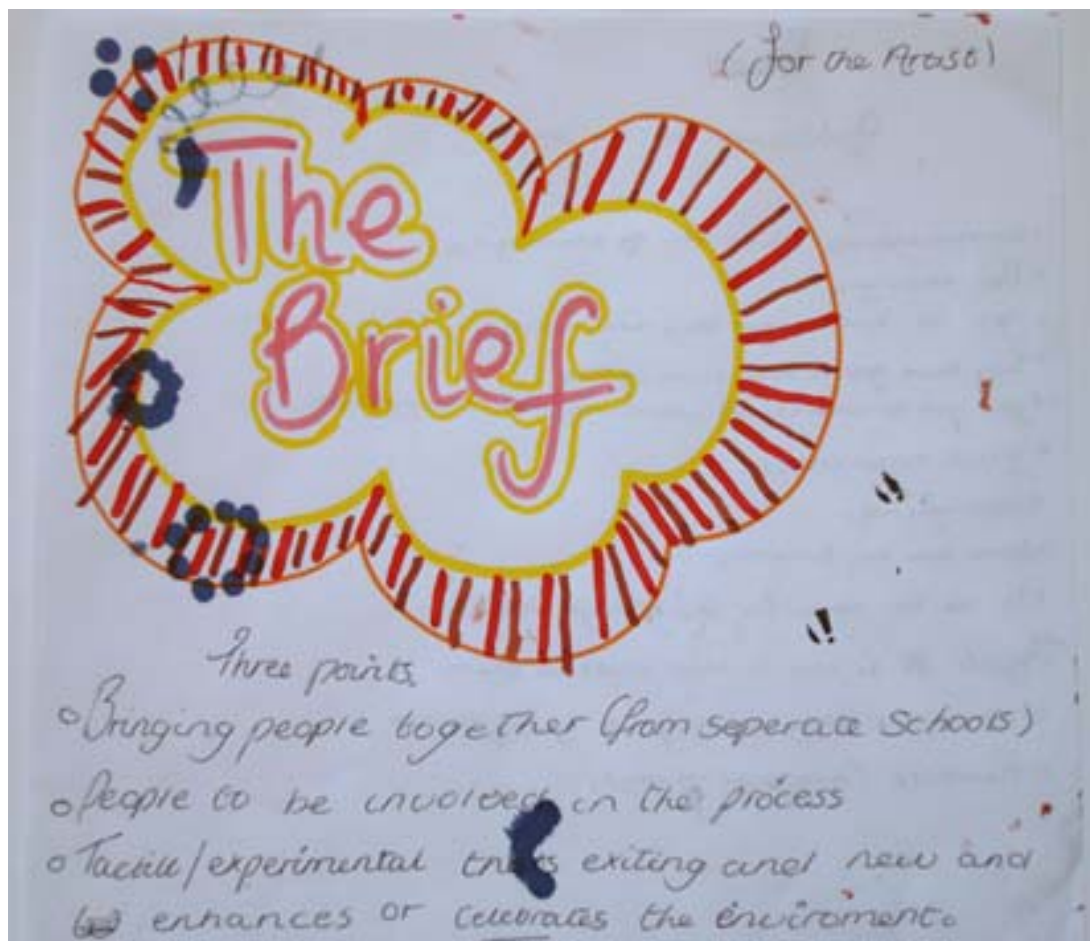 (for the Artist)
The
Brief
Three points
Bringing people together (from seperate Schools)
People to be involved in the process
Tactile/experimental exiting and new and
enhances or celebrates the enviroment.